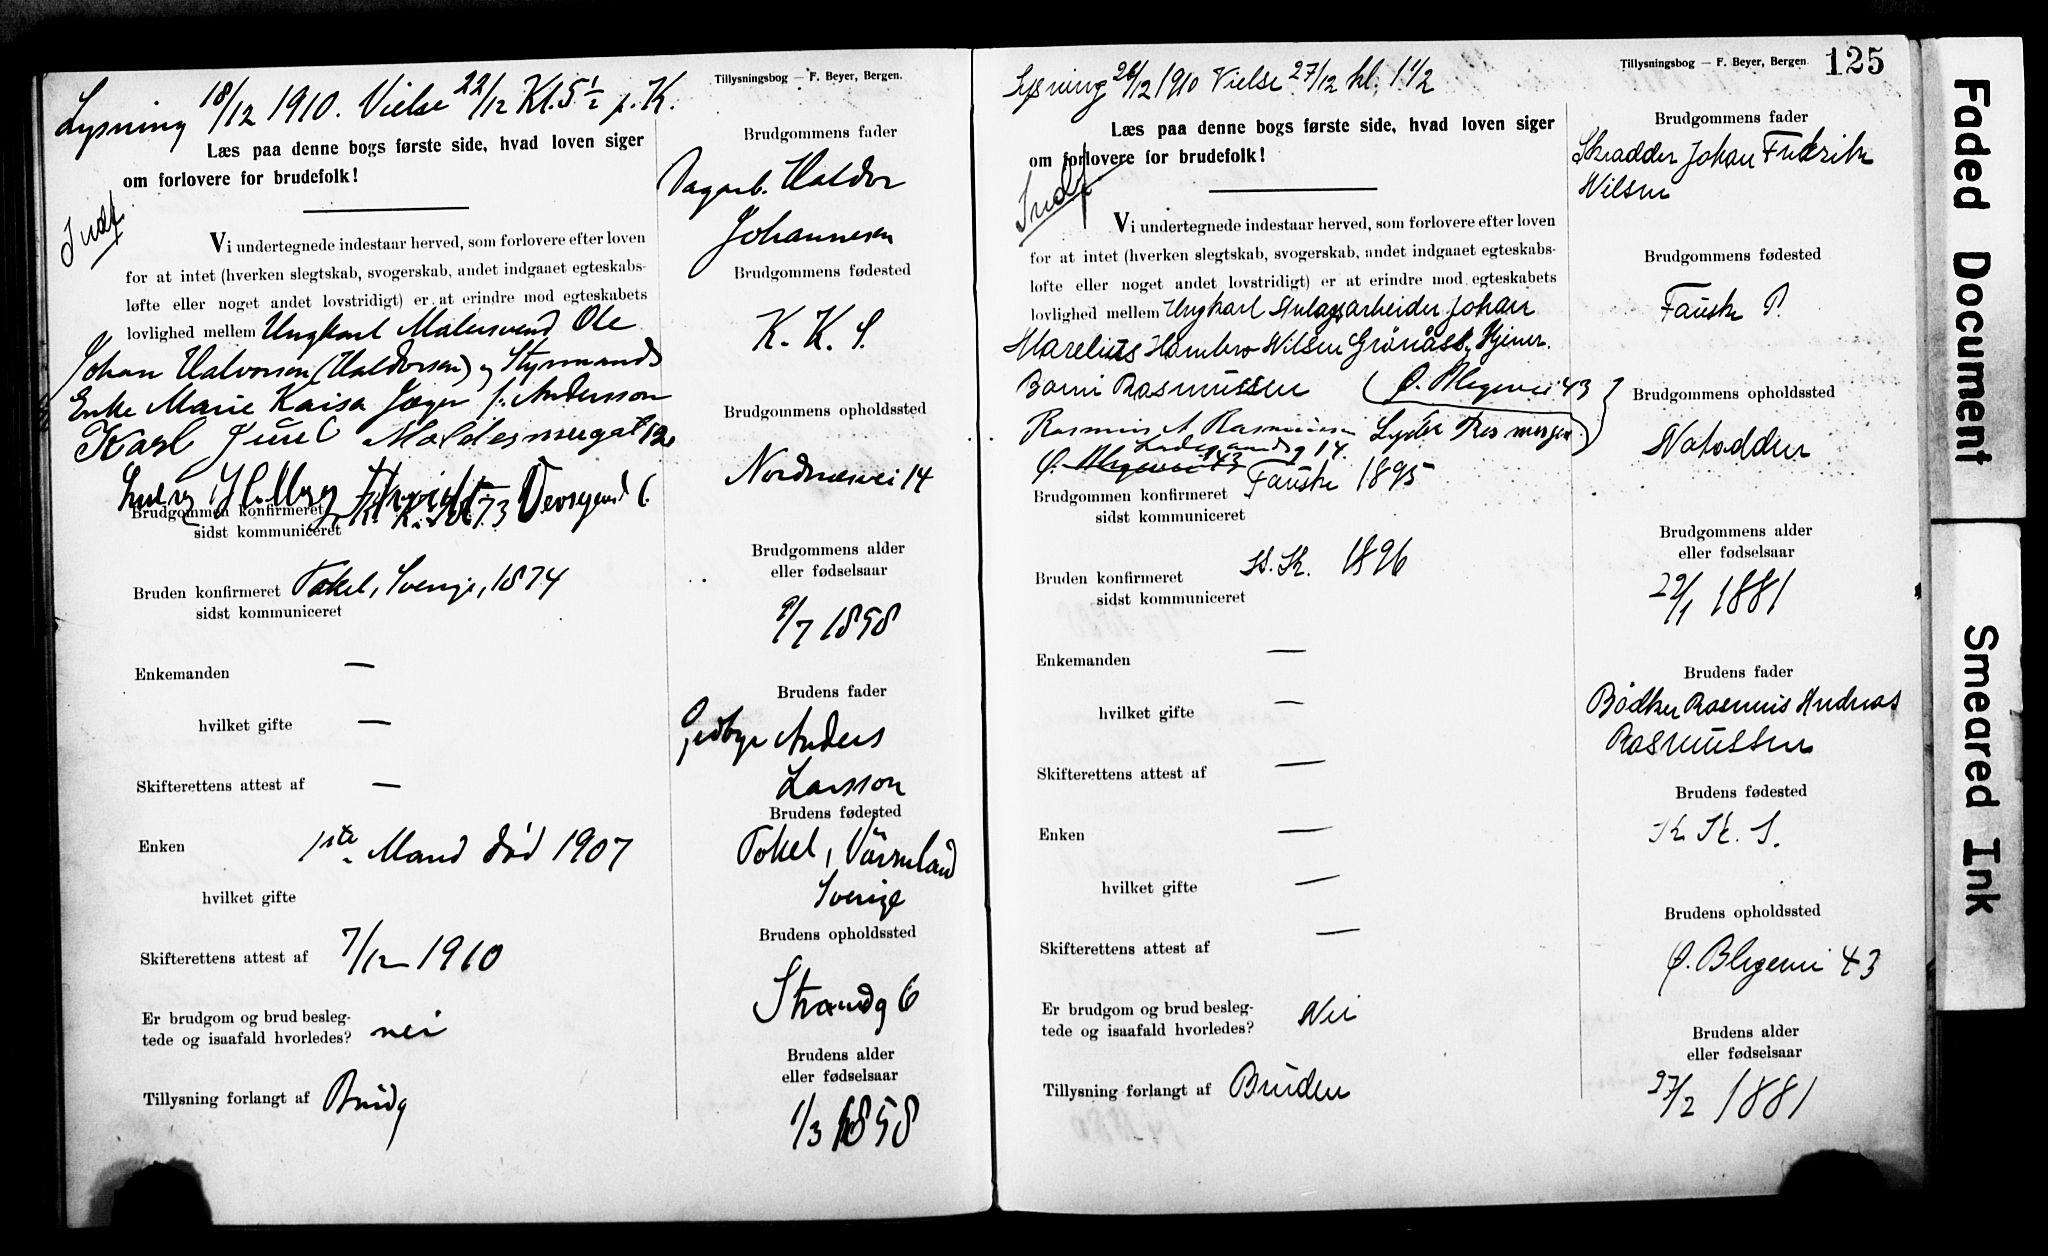 Lysning 18/12 1910. Vielse 22/12 Kl. 5 ½ K.
Tillysningsbog — F. Beyer, Bergen.
Læs paa denne bogs første side, hvad loven siger
om forlovere for brudefolk!
Indf
Vi undertegnede indestaar herved, som forlovere efter loven
for at intet (hverken slegtskab, svogerskab, andet indgaaet egteskabs-
løfte eller noget andet lovstridigt) er at erindre mod egteskabets
lovlighed mellem Ungkarl Malersvend Ole
Johan Halvorsen (Haldorsen) og Styrmands
Enke Marie Kaisa Jæger f. Andersson
Karl Juul
Brudgommen konfirmeret K. K. 1873
sidst kommuniceret
Bruden konfirmeret Tokel, Sverige, 1874
sidst kommuniceret
Enkemanden —
hvilket gifte —
Skifterettens attest af —
Enken 1ste Mand død 1907
hvilket gifte
Skifterettens attest af 7/12 1910
Er brudgom og brud besleg-
tede og isaafald hvorledes? nei
Tillysning forlangt af Brudg
Brudgommens fader
Dagarb. Haldor
Johannesen
Brudgommens fødested
K. K. S.
Brudgommens opholdssted
Nordnæsvei 14
Brudgommens alder
eller fødselsaar
9/7 1858
Brudens fader
Anders
Larsson
Brudens fødested
Tokel, Värmland
Sverige
Brudens opholdssted
Strandg 6
Brudens alder
eller fødselsaar
1/3 1858
Lysning 26/12 1910 Vielse 27/12 kl. 1 1/2
Tillysningsbog — F. Beyer, Bergen.
125
Læs paa denne bogs første side, hvad loven siger
om forlovere for brudefolk!
Indf
Vi undertegnede indestaar herved, som forlovere efter loven
for at intet (hverken slegtskab, svogerskab, andet indgaaet egteskabs-
løfte eller noget andet lovstridigt) er at erindre mod egteskabets
lovlighed mellem Ungkarl Anlægsarbeider Johan
Marelius Hambro Nilsen Grønåss
Rasmussen Ø. Blegevei 43
Rasmus A Rasmussen
Ø. Blegevei 43
Brudgommen konfirmeret Fauske 1895
sidst kommuniceret
Bruden konfirmeret K. K. 1896
sidst kommuniceret
Enkemanden —
hvilket gifte —
Skifterettens attest af —
Enken —
hvilket gifte —
Skifterettens attest af —
Er brudgom og brud besleg-
tede og isaafald hvorledes? Nei
Tillysning forlangt af Bruden
Brudgommens fader
Skradder Johan Fredrik
Nilsen
Brudgommens fødested
Fauske P.
Brudgommens opholdssted
Notodden
Brudgommens alder
eller fødselsaar
22/1 1881
Brudens fader
Bødker Rasmus Andreas
Rasmussen
Brudens fødested
K. K. S.
Brudens opholdssted
Ø. Blegevei 43
Brudens alder
eller fødselsaar
27/2 1881
Faded Document
Smeared Ink